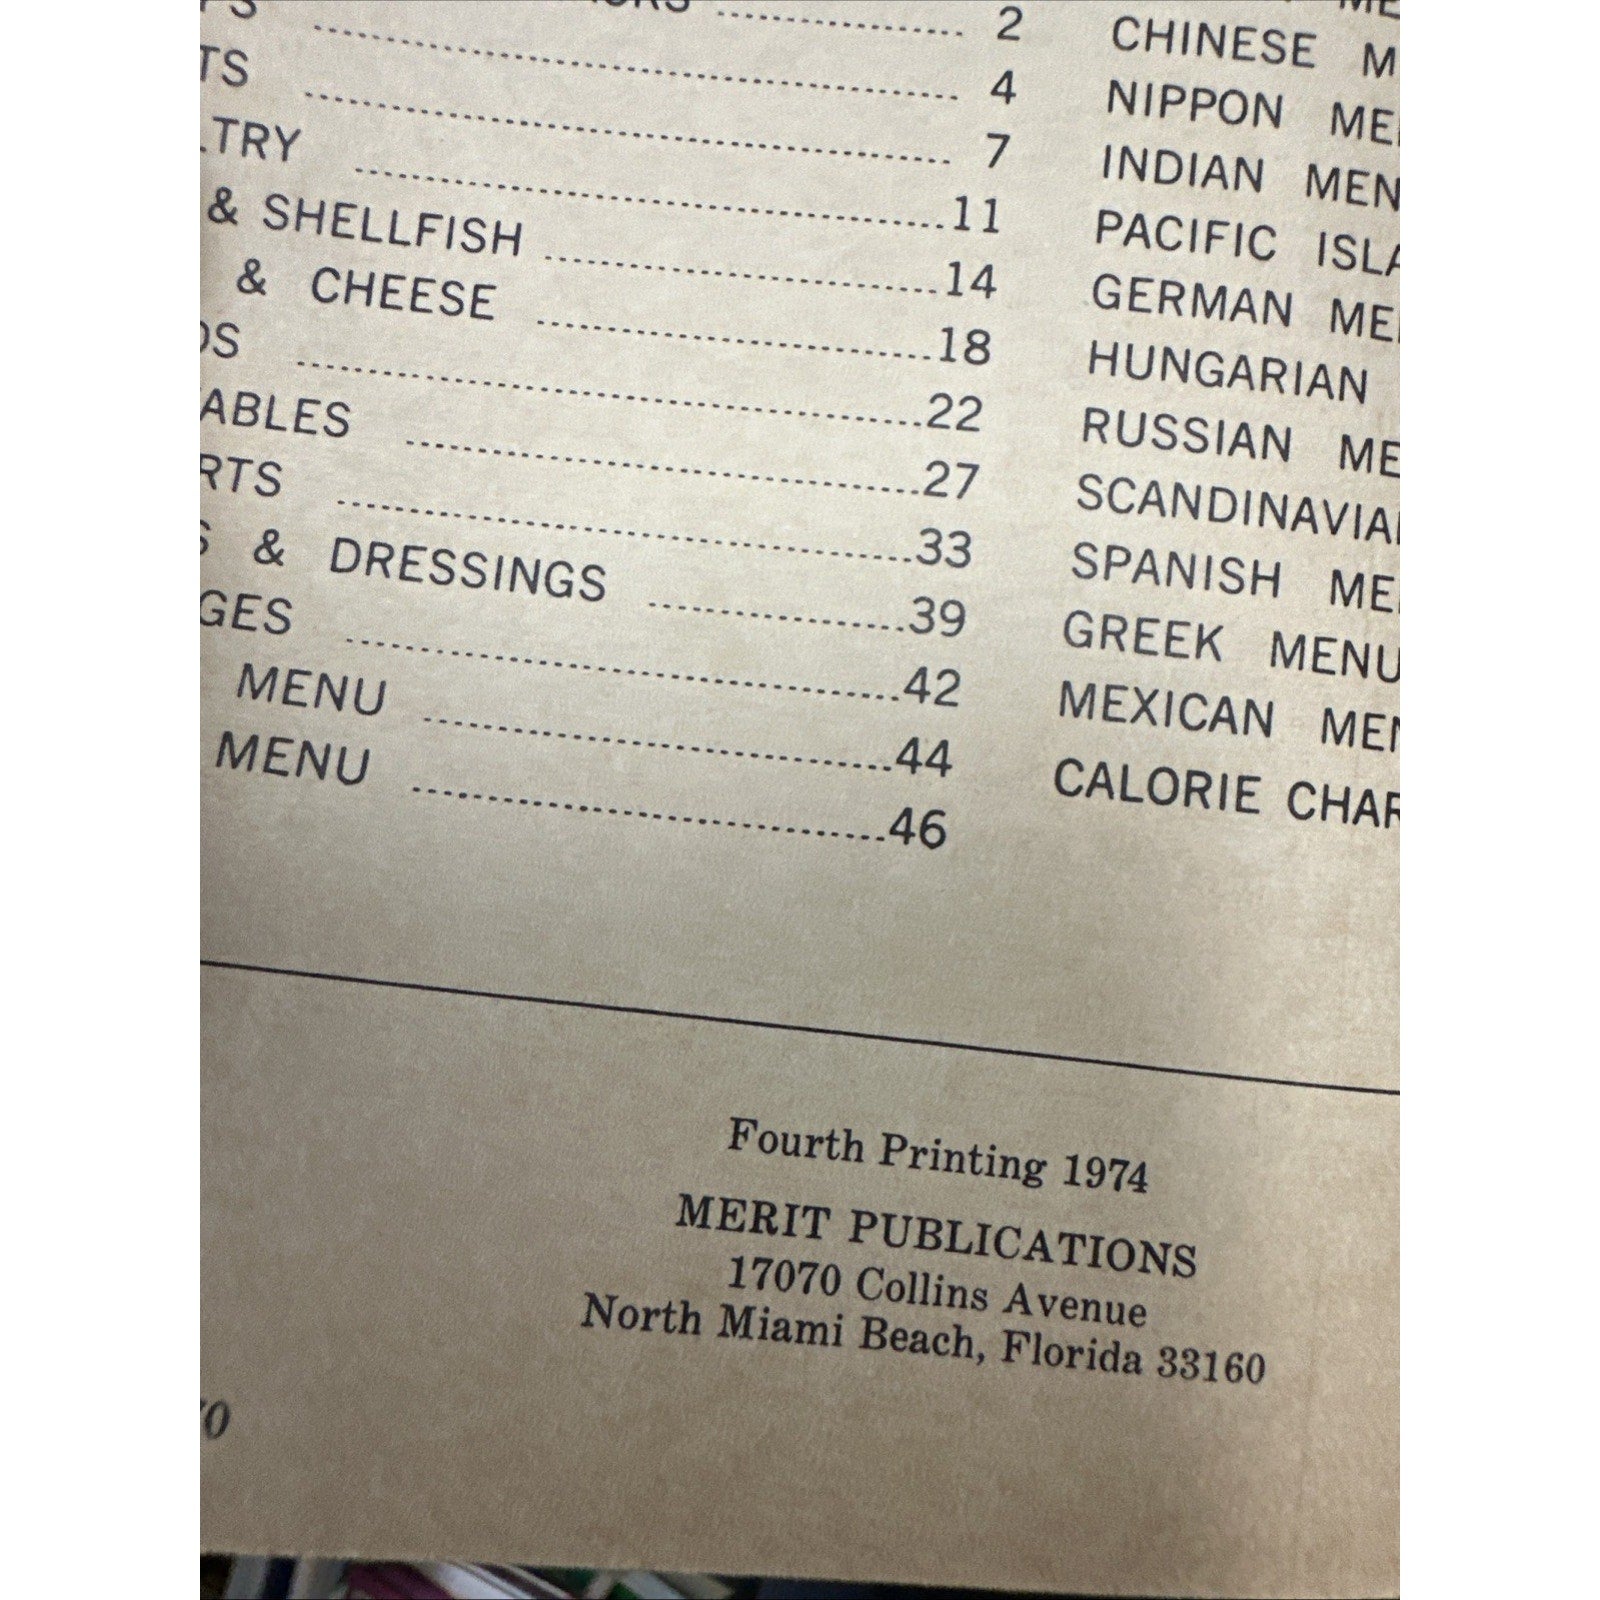 2
4
TS 7
LTRY 11
& SHELLFISH 14
& CHEESE 18
DS 22
ABLES 27
RTS 33
& DRESSINGS 39
GES 42
MENU 44
MENU 46
CHINESE M
NIPPON ME
INDIAN MEN
PACIFIC ISLA
GERMAN ME
HUNGARIAN
RUSSIAN ME
SCANDINAVIA
SPANISH ME
GREEK MENU
MEXICAN MEN
CALORIE CHAR
Fourth Printing 1974
MERIT PUBLICATIONS
17070 Collins Avenue
North Miami Beach, Florida 33160